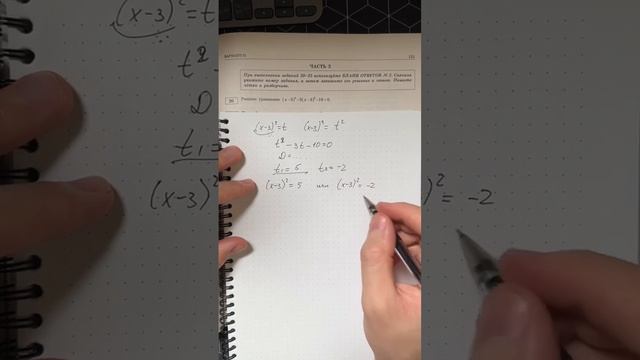 ВАРИАНТ 21
ЧАСТЬ 2
При выполнении заданий 20–25 используйте БЛАНК ОТВЕТОВ № 2. Сначала
укажите номер задания, а затем запишите его решение и ответ. Пишите
чётко и разборчиво.
20 Решите уравнение (x−3)⁴−3(x−3)²−10=0.
(x-3)²=t (x-3)⁴= t²
t²-3t-10=0
D=...
t₁=5 t₂=-2
(x-3)²=5 или (x-3)²=-2